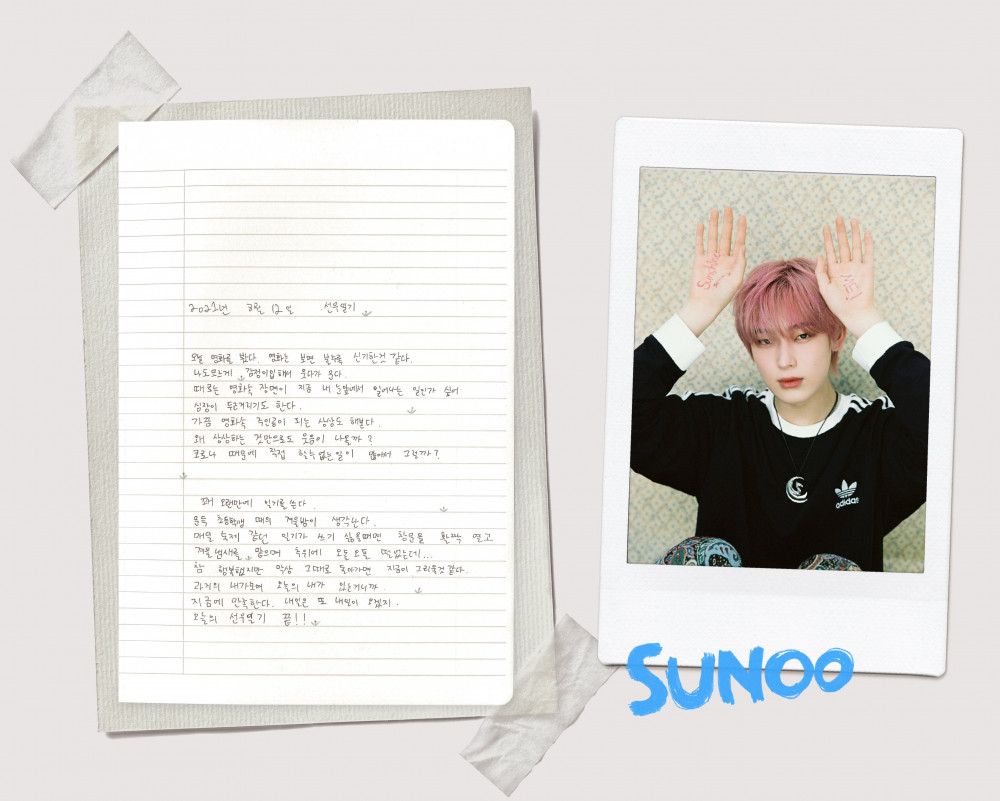 2021년 3월 12일 선우일기
오늘 영화를 봤다. 영화는 보면 볼수록 신기한것 같다.
나도모르게 감정이입해서 웃다가 운다.
때로는 영화속 장면이 지금 내 눈앞에서 일어나는 일인가 싶어
심장이 두근거리기도 한다.
가끔 영화속 주인공이 되는 상상도 해본다.
왜 상상하는 것만으로도 웃음이 나올까?
코로나 때문에 직접 할수없는일이 많아서 그럴까?
꽤 오랜만에 일기를 쓴다.
문득 초등학생 때의 겨울밤이 생각난다.
매일 숙제 같던 일기가 쓰기 싫을때면 창문을 활짝 열고
겨울냄새를 맡으며 추위에 오들오들 떨었는데...
참 행복했지만 막상 그때로 돌아가면 지금이 그리울것 같다.
과거의 내가모여 오늘의 내가 있는거니까.
지금에 만족한다. 내일은 또 내일이 오겠지.
오늘의 선우일기 끝!!
adidas
SUNOO